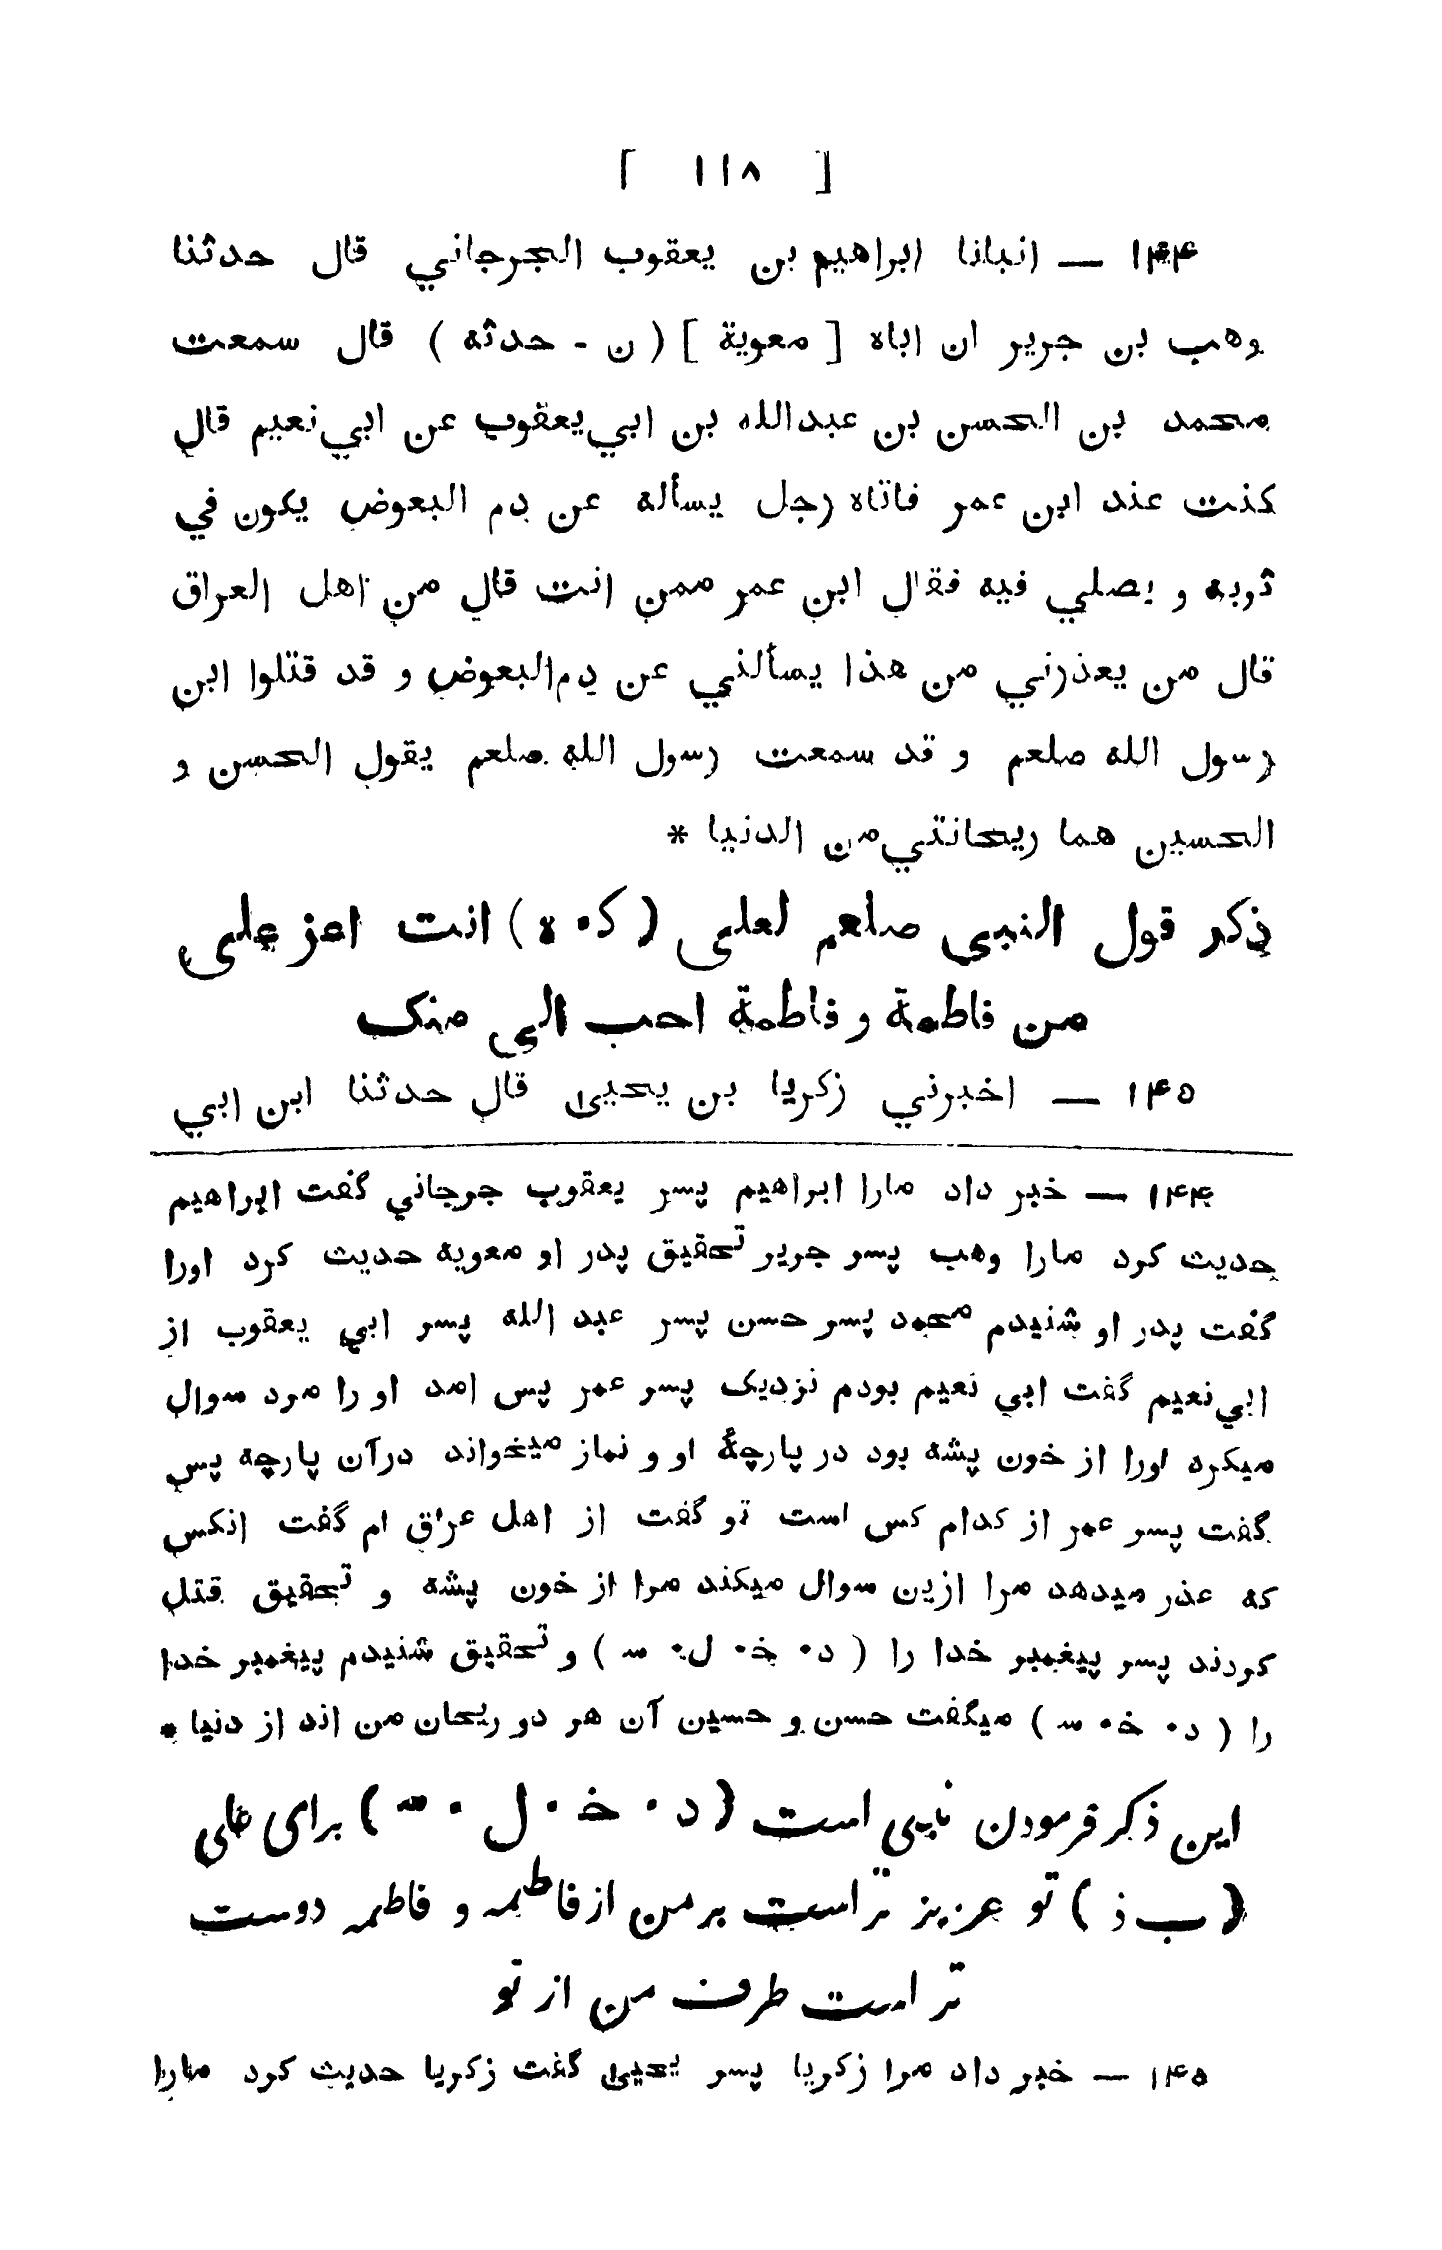 [ ١١٨ ]
١۴۴ — انبانا ابراهيم بن يعقوب الجرجاني قال حدثنا
وهب بن جرير ان اباه [ معوية ] ( ن - حدثه ) قال سمعت
محمد بن الحسن بن عبدالله بن ابي يعقوب عن ابي نعيم قال
كنت عند ابن عمر فاتاه رجل يسأله عن دم البعوض يكون في
ثوبه و يصلي فيه فقال ابن عمر ممن انت قال من اهل العراق
قال من يعذرني من هذا يسألني عن دم البعوض و قد قتلوا ابن
رسول الله صلعم و قد سمعت رسول الله صلعم يقول الحسن و
الحسين هما ريحانتي من الدنيا *
ذكر قول النبى صلعم لعلى ( ك٠ ة ) انت اعز على
من فاطمة و فاطمة احب الى منك
١۴۵ — اخبرني زكريا بن يحيى قال حدثنا ابن ابي
١۴۴ — خبر داد مارا ابراهيم پسر يعقوب جرجاني گفت ابراهيم
حديث كرد مارا وهب پسر جرير تحقيق پدر او معويه حديث كرد اورا
گفت پدر او شنيدم محمد پسر حسن پسر عبد الله پسر ابي يعقوب از
ابي نعيم گفت ابي نعيم بودم نزديک پسر عمر پس امد او را مرد سوال
ميكره اورا از خون پشه بود در پارچهٔ او و نماز ميخواند درآن پارچه پس
گفت پسر عمر از كدام كس است تو گفت از اهل عراق ام گفت انكس
كه عذر ميدهد مرا ازين سوال ميكند مرا از خون پشه و تحقيق قتل
كردند پسر پيغمبر خدا را ( د٠ خ٠ ل٠ س ) و تحقيق شنيدم پيغمبر خدا
را ( د٠ خ٠ س ) ميگفت حسن و حسين آن هر دو ريحان من اند از دنيا *
اين ذكر فرمودن نبى است ( د ٠ خ ٠ ل ٠ س ) براى على
( ب ذ ) تو عزيز تر است بر من از فاطمه و فاطمه دوست
تر است طرف من از تو
١۴۵ — خبر داد مرا زكريا پسر يحيى گفت زكريا حديث كرد مارا